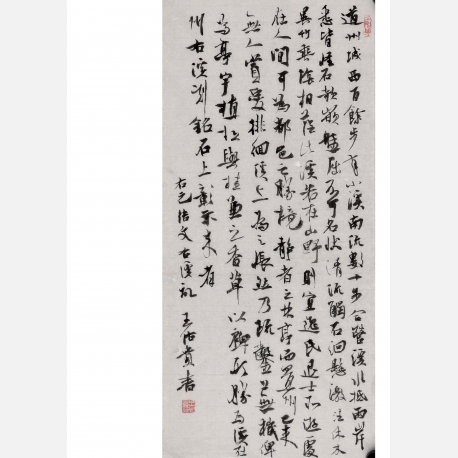 道州城西百餘步有小溪南流數十步合營溪水抵兩岸
悉皆怪石欹嵌盤屈不可名狀清流觸石洄懸激注休木
異竹垂陰相蔭此溪若在山野則宜逸民退士所遊處
在人間可為都邑之勝境靜者之林亭而置州已來
無人賞愛徘徊溪上為之悵然乃疏鑿蕪穢俾
為亭宇植松與桂兼之香草以裨形勝為溪在
州右溪刻銘石上彰示來者
右元結文右溪記 王 貴書